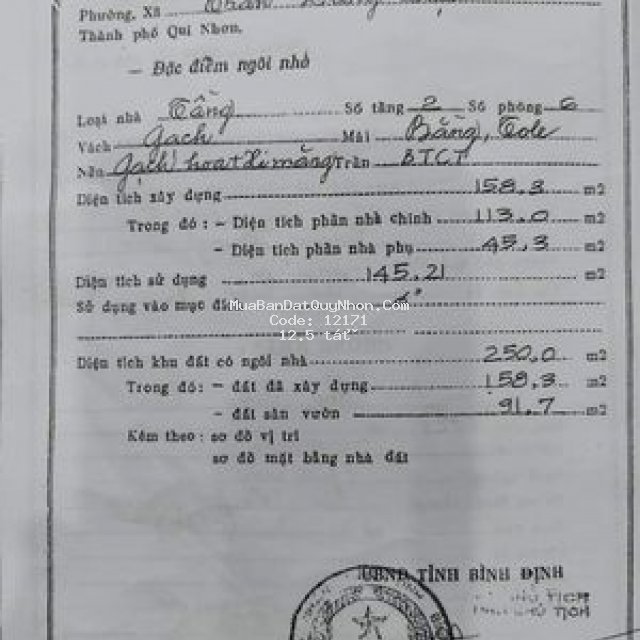 Phường, Xã
Thành phố Qui Nhơn,
— Đặc điểm ngôi nhà
Loại nhà Tầng Số tầng 2 Số phòng 6
Vách Gạch Mái Bằng, Tole
Nền Gạch hoa + Xi măng Trần BTCT
Diện tích xây dựng 158.3 m2
Trong đó: – Diện tích phần nhà chính 113.0 m2
– Diện tích phần nhà phụ 45.3 m2
Diện tích sử dụng 145.21 m2
Sử dụng vào mục đích
MuaBanDatQuyNhon.Com
Code: 12171
12.5 tất
Diện tích khu đất có ngôi nhà 250.0 m2
Trong đó: – đất đã xây dựng 158.3 m2
– đất sân vườn 91.7 m2
Kèm theo: sơ đồ vị trí
sơ đồ mặt bằng nhà đất
UBND TỈNH BÌNH ĐỊNH
CHỦ TỊCH